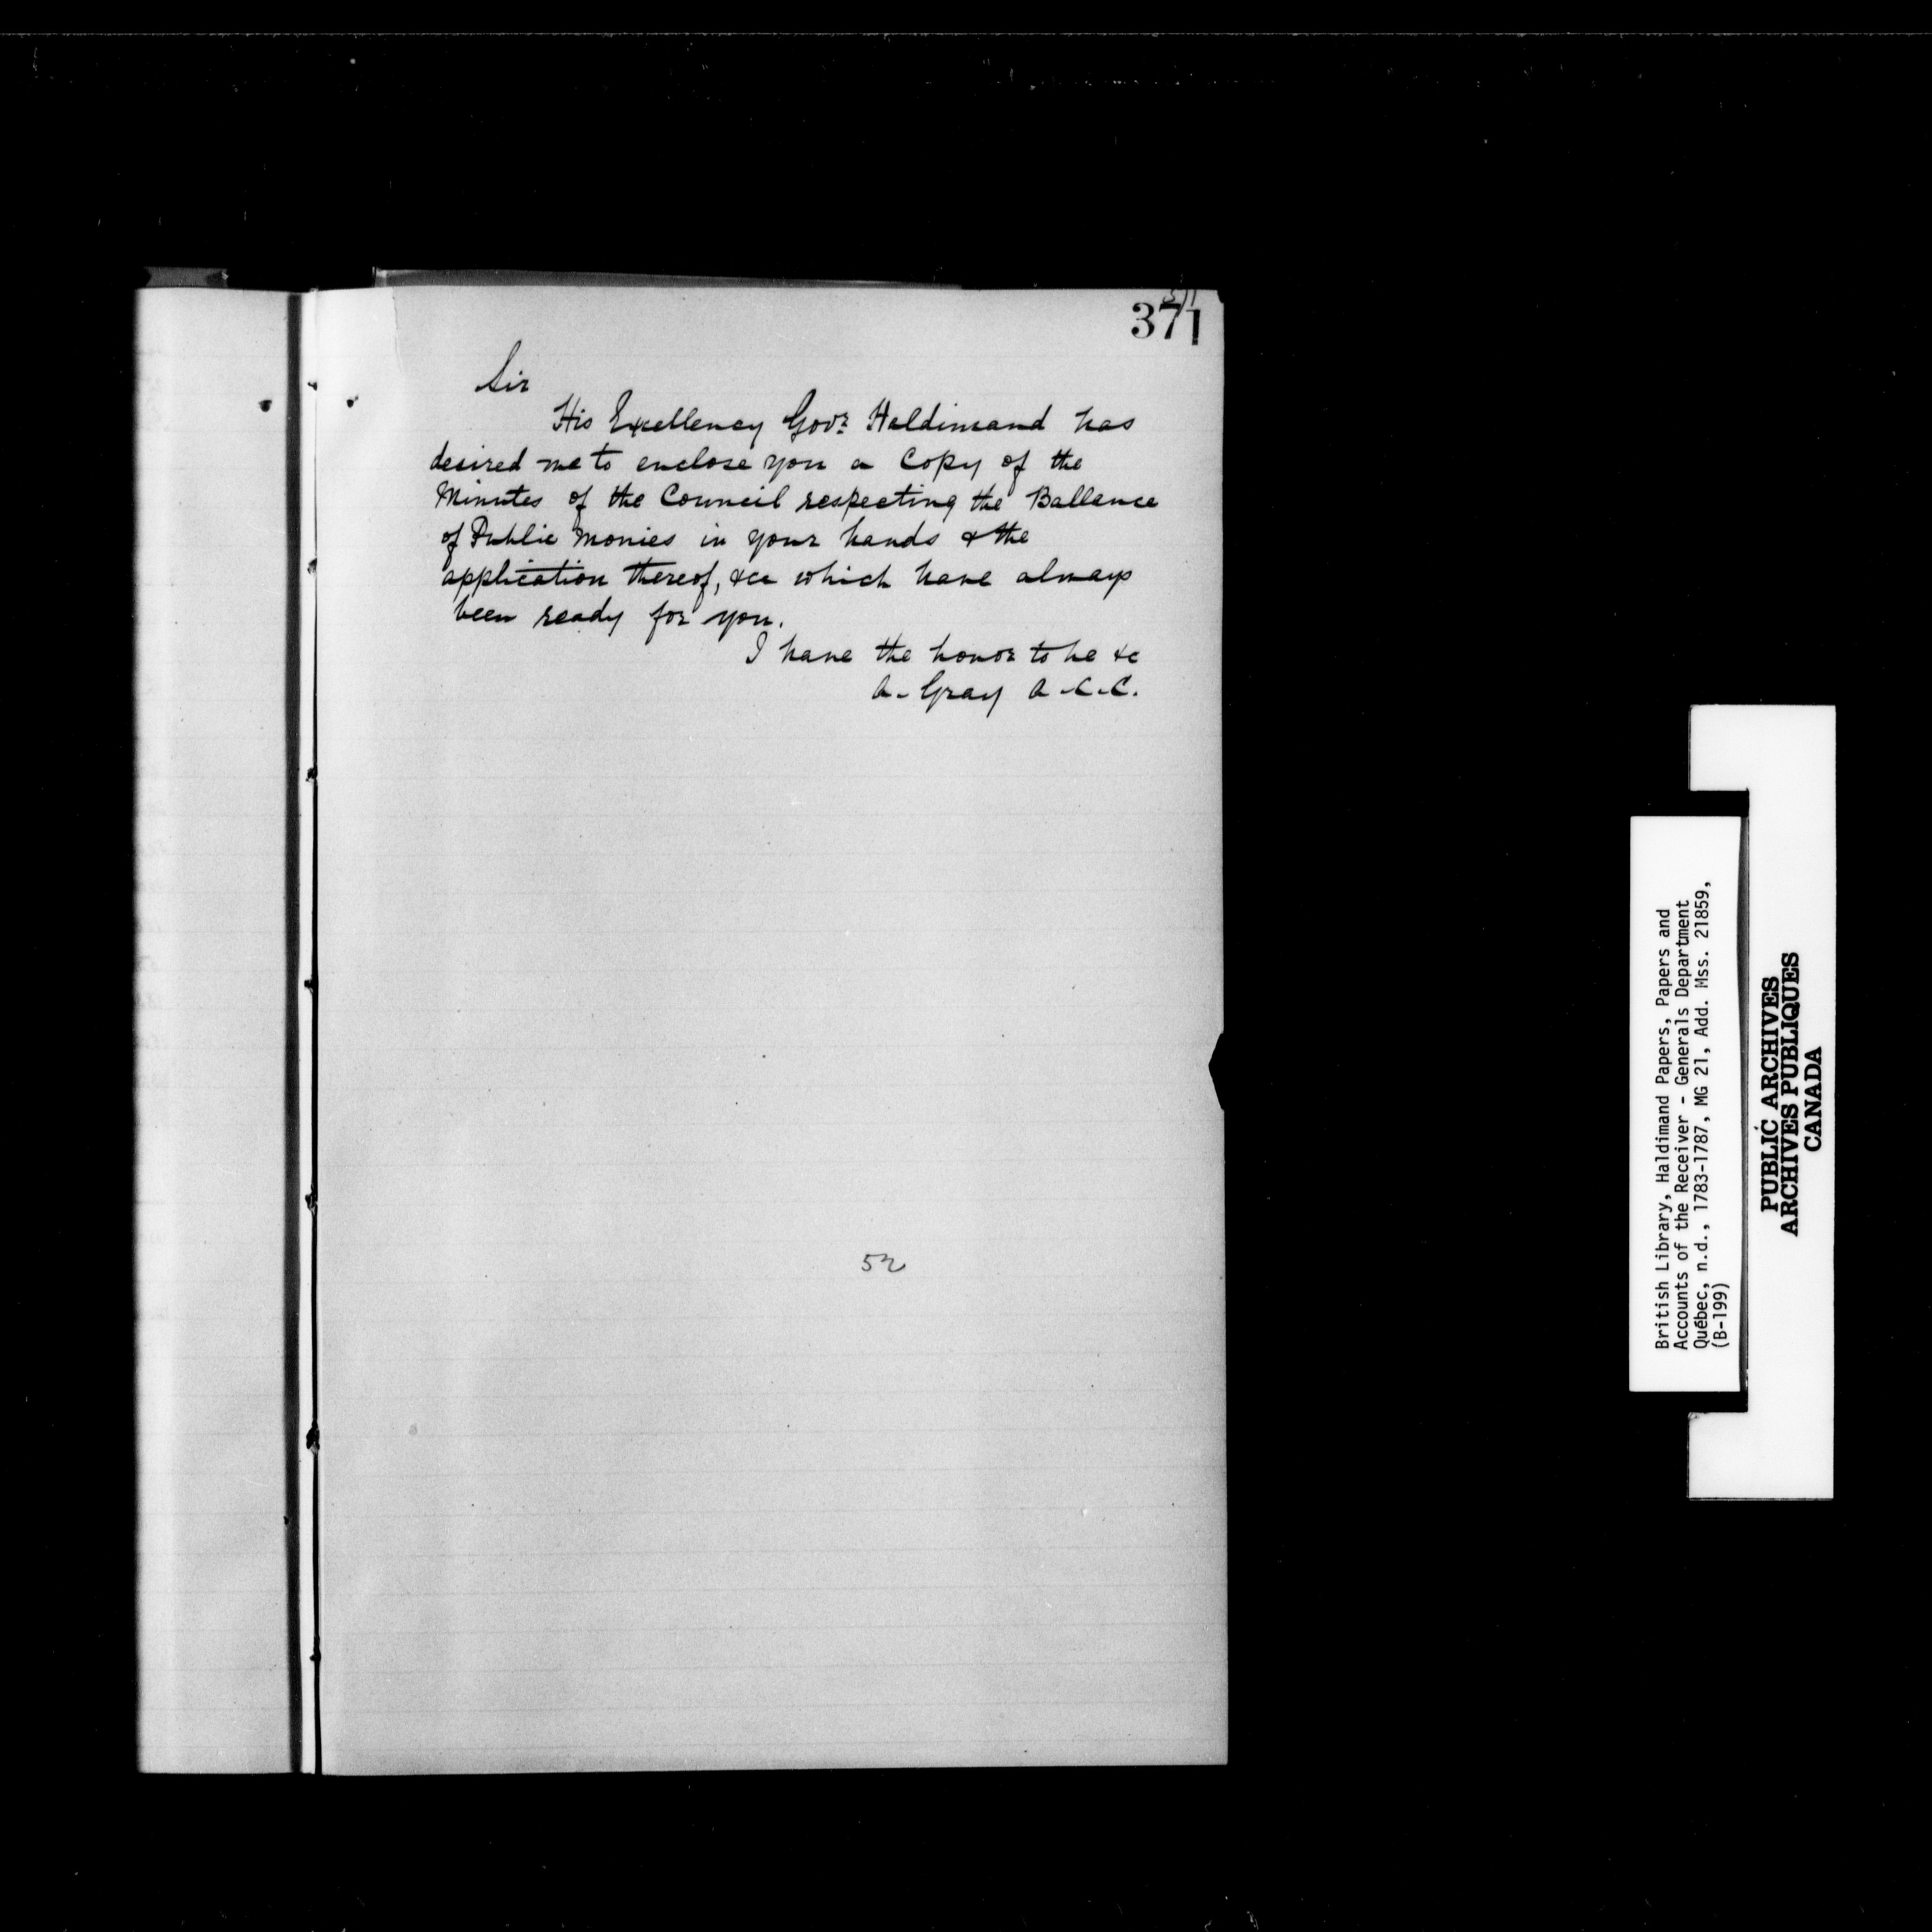 371
Sir
His Excellency Govr. Haldimand has
desired me to enclose you a Copy of the
Minutes of the Council respecting the Ballance
of Public Monies in your hands & the
application thereof, &ca which have always
been ready for you.
I have the honor to be &c
A. Gray A.C.C.
52
British Library, Haldimand Papers, Papers and
Accounts of the Receiver - Generals Department
Québec, n.d., 1783-1787, MG 21, Add. Mss. 21859,
(B-199)
PUBLIC ARCHIVES
ARCHIVES PUBLIQUES
CANADA